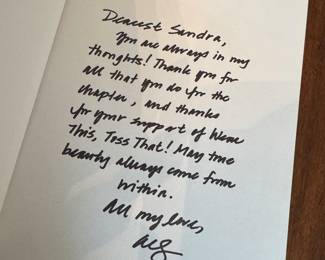 Dearest Sandra,
You are always in my
thoughts! Thank you for
all that you do for the
chapter, and thanks
for your support of Wear
This, Toss That! May true
beauty always come from
within.
All my love,